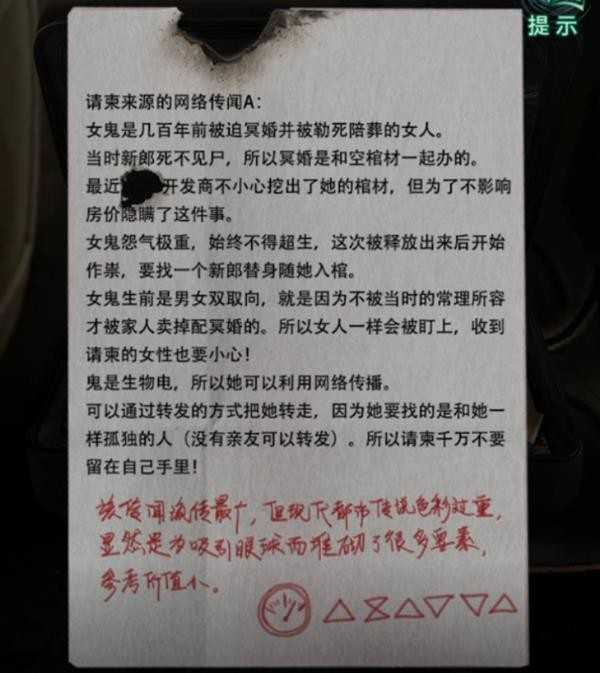 提示
请柬来源的网络传闻A：
女鬼是几百年前被迫冥婚并被勒死陪葬的女人。
当时新郎死不见尸，所以冥婚是和空棺材一起办的。
最近 开发商不小心挖出了她的棺材，但为了不影响
房价隐瞒了这件事。
女鬼怨气极重，始终不得超生，这次被释放出来后开始
作祟，要找一个新郎替身随她入棺。
女鬼生前是男女双取向，就是因为不被当时的常理所容
才被家人卖掉配冥婚的。所以女人一样会被盯上，收到
请柬的女性也要小心！
鬼是生物电，所以她可以利用网络传播。
可以通过转发的方式把她转走，因为她要找的是和她一
样孤独的人（没有亲友可以转发）。所以请柬千万不要
留在自己手里！
该传闻流传最广，但现代都市传说色彩过重，
显然是为吸引眼球而堆砌了很多要素，
参考价值小。